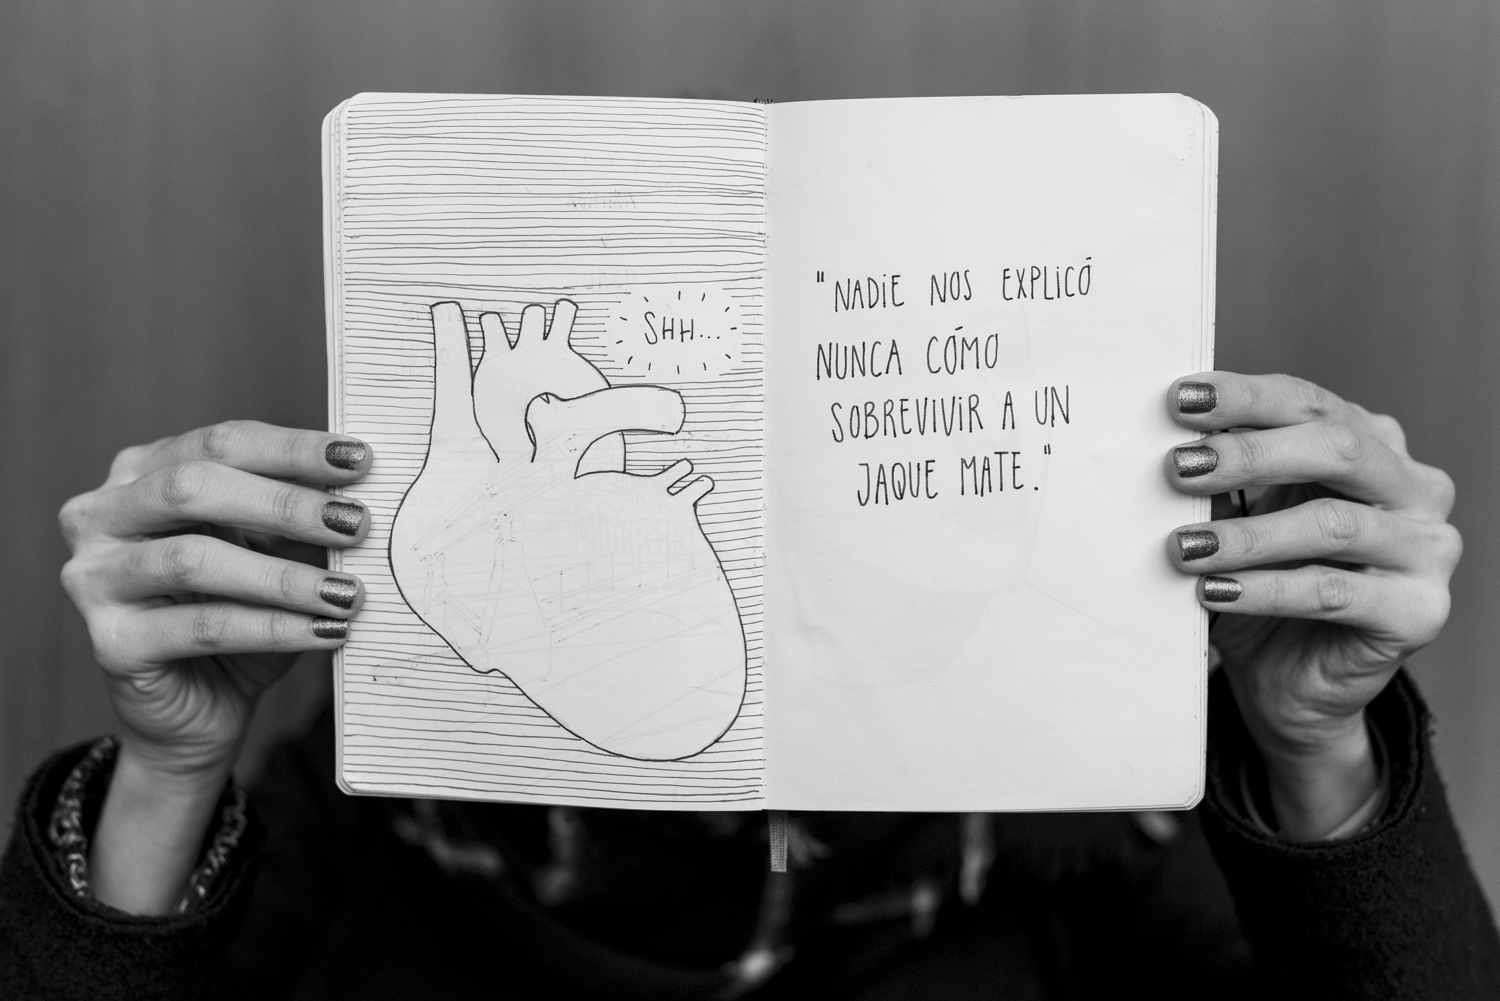 SHH...
"NADIE NOS EXPLICÓ
NUNCA CÓMO
SOBREVIVIR A UN
JAQUE MATE."